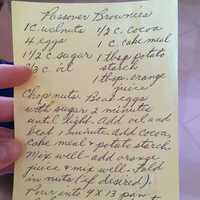 Passover Brownies
1 c. walnuts 1/2 c. cocoa
4 eggs 1 c. cake meal
1 1/2 c. sugar 1 tbsp potato
2/3 c. oil starch
1 tbsp. orange
juice
Chop nuts. Beat eggs
with sugar 2 minutes
until light. Add oil and
beat 1 minute. Add cocoa,
cake meal & potato starch.
Mix well - add orange
juice & mix well. Fold
in nuts (if desired).
Pour into 9 X 13 pan